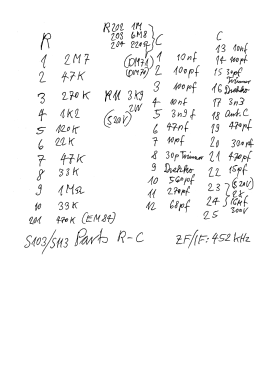 R
R202 1M
203 6M8
204 220Ω
(DM71)
(DM70)
1 2M7
2 47K
3 270K
4 1K2
5 120K
6 22K
7 47K
8 33K
9 1MΩ
10 39K
201 470K (EM84)
R11 3K9
2W
(S20V)
C
1 10nf
2 100pf
3 100pf
4 10nf
5 3n9f
6 47nf
7 10pf
8 30p Trimmer
9 Drehko
10 560pf
11 270pf
12 68pf
C
13 10nf
14 100pf
15 30pf
Trimmer
16 Drehko
17 3n3
18 Ant.C
19 470pf
20 300pf
21 470pf
22 15pf
23 (S20V)
24 2x
16Mf
25 300V
S103/S113 Parts R-C
ZF/IF: 452 kHz